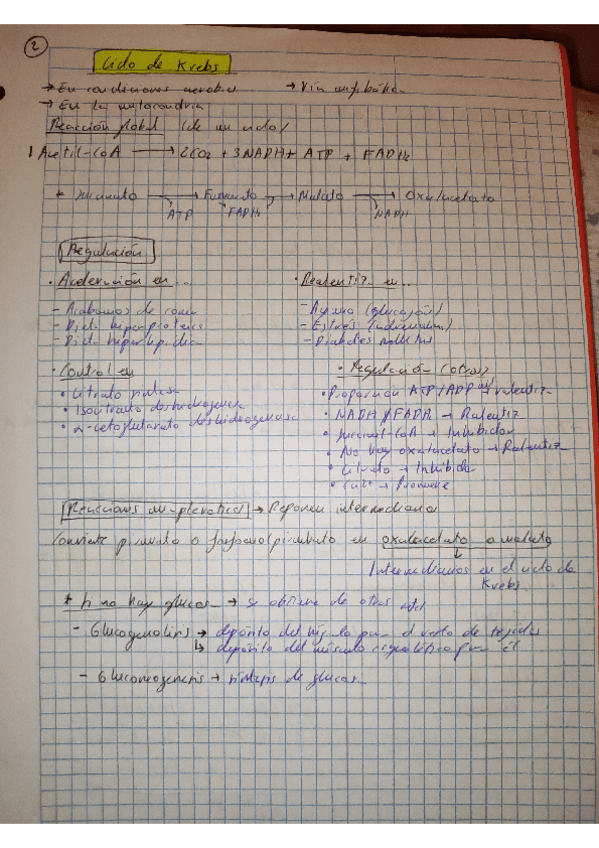 2
Ciclo de Krebs
→ En condiciones aerobias → Vía anfibólica
→ En la mitocondria
Reacción global (de un ciclo)
1 Acetil-CoA → 2CO2 + 3NADH + ATP + FADH2
* Succinato → Fumarato → Malato → Oxalacetato
ATP FADH2 NADH
Regulación
• Aceleración en...
- Acabamos de comer
- Dieta hiperproteica
- Dieta hiperlipídica
• Ralentiz en...
- Ayuno (glucagón)
- Estrés (adrenalina)
- Diabetes mellitus
• Control en
• Citrato sintasa
• Isocitrato deshidrogenasa
• α-cetoglutarato deshidrogenasa
• Regulación (otros)
• Proporción ATP/ADP → ralentiz
• NADH / FADH2 → Ralentiz
• Succinil-CoA → Inhibidor
• No hay oxalacetato → Ralentiz
• Citrato → Inhibidor
• Ca2+ → Promueve
Reacciones anapleróticas → Reponen intermediarios
Convierte piruvato o fosfoenolpiruvato en oxalacetato o malato
↓
Intermediarios en el ciclo de
Krebs
* Si no hay glucosa → se obtiene de otras
- Glucogenolisis → depósito del hígado para el resto de tejidos
↳ depósito del músculo esquelético para él
- Gluconeogenesis → síntesis de glucosa